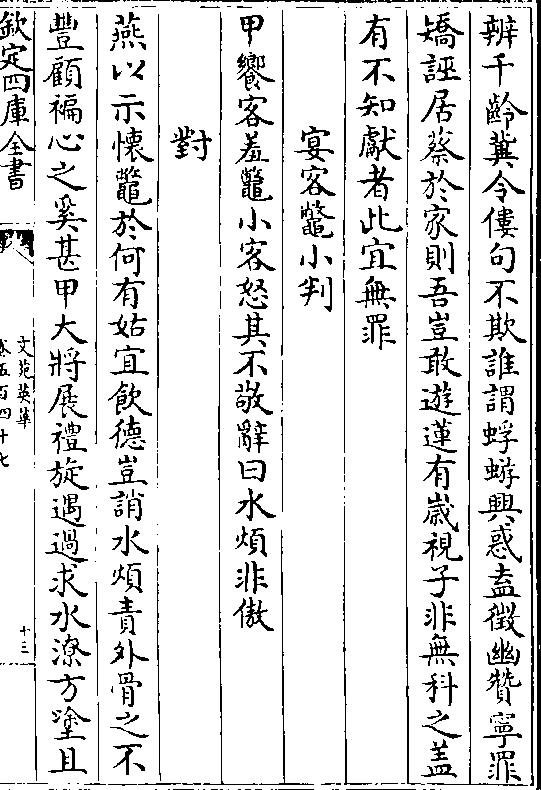 辨千齡冀令僂句不欺誰謂蜉蝣興惑盍徵幽贊寧罪
矯誣居蔡於家則吾豈敢遊蓮有嵗視子非無科之盖
有不知獻者此宜無罪
宴客鼈小判
甲饗客羞鼈小客怒其不敬辭曰水煩非傲
對
燕以示懷鼈於何有姑宜飲德豈誚水煩責外骨之不
豐顧褊心之奚甚甲大將展禮旋遇過求水潦方塗且
欽定四庫全書
文苑英華
卷五百四十七
十三